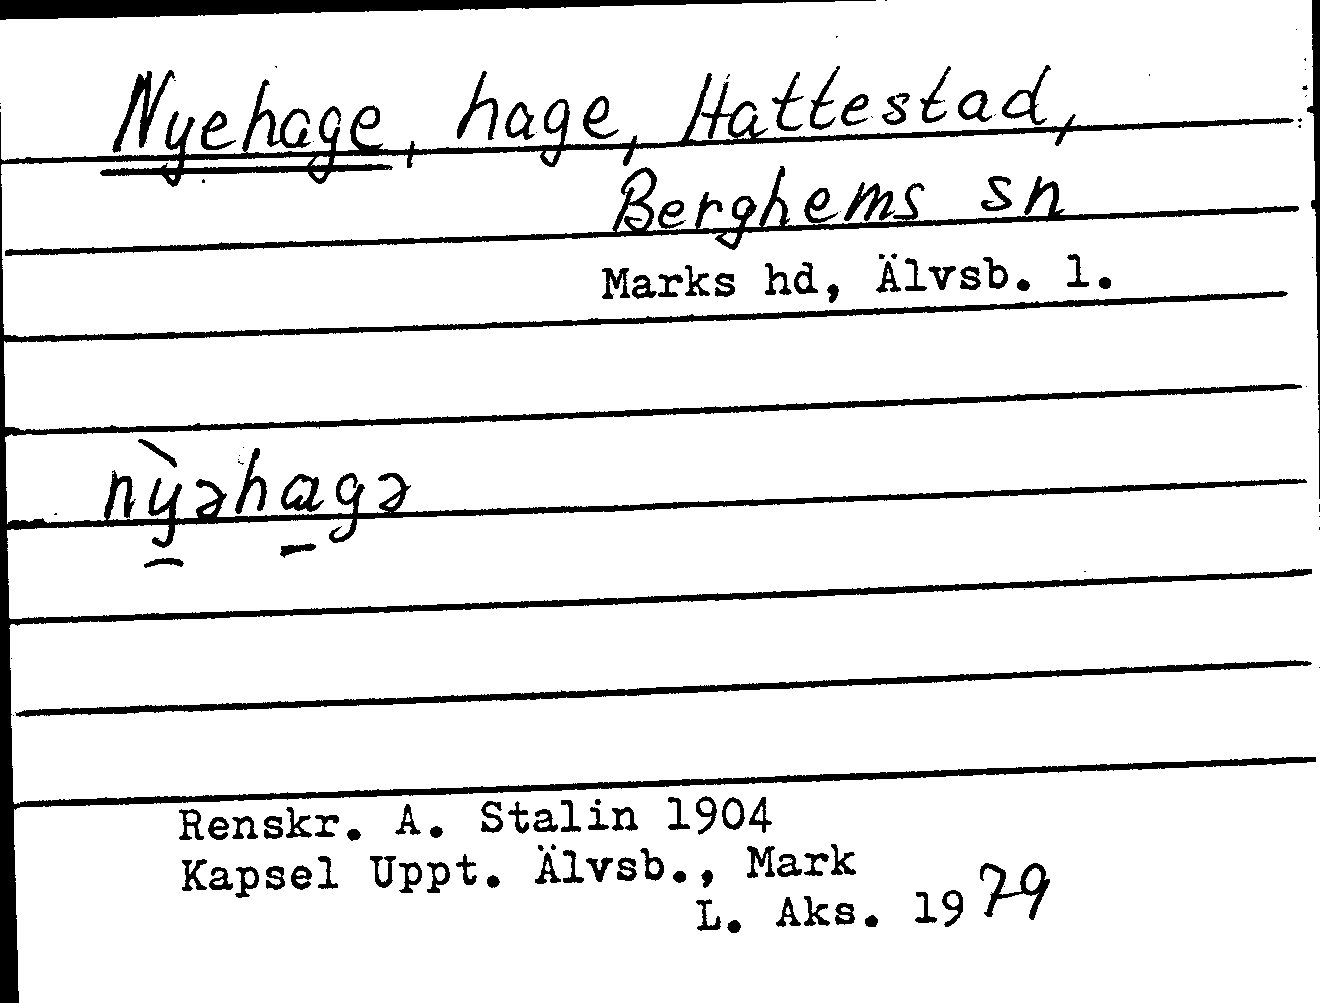 Nyehage, hage, Hattestad,
Berghems sn
Marks hd, Älvsb. l.
nỳəhagə
Renskr. A. Stalin 1904
Kapsel Uppt. Älvsb., Mark
L. Aks. 1979